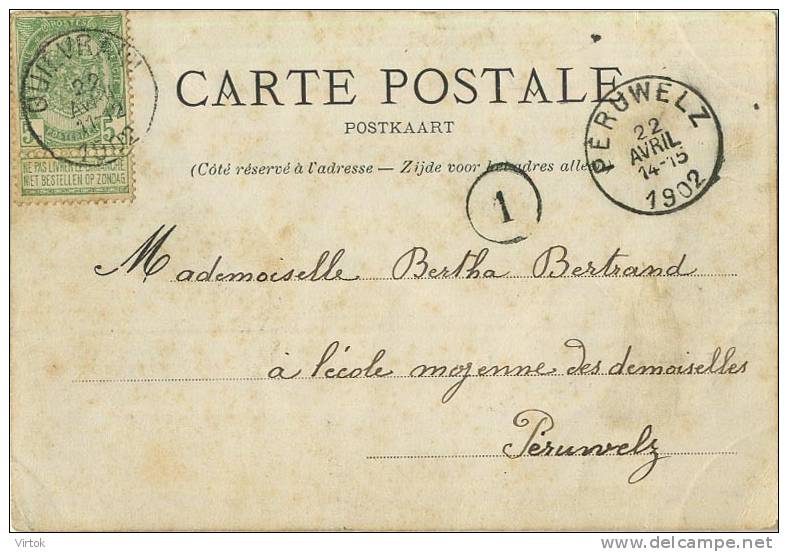 CARTE POSTALE
POSTKAART
(Côté réservé à l'adresse — Zijde voor het adres alleen)
QUIÉVRAIN
22
AVRIL
1902
5 5
NE PAS LIVRER LE DIMANCHE
NIET BESTELLEN OP ZONDAG
PÉRUWELZ
22
AVRIL
14-15
1902
1
Mademoiselle Bertha Bertrand
à l'école moyenne des demoiselles
Péruwelz
Virtok
delcampe.net